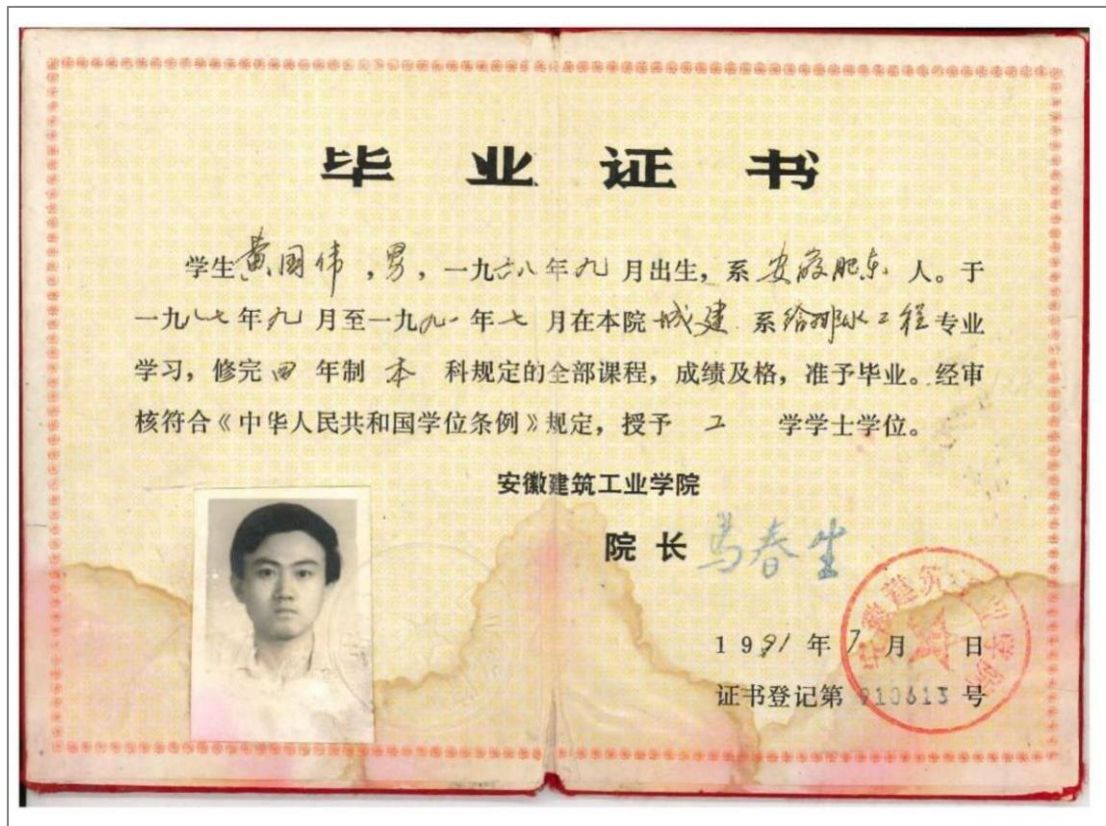 毕业证书
学生黄国伟，男，一九六八年九月出生，系安徽肥东人。于
一九八七年九月至一九九一年七月在本院城建系给排水工程专业
学习，修完四年制本科规定的全部课程，成绩及格，准予毕业。经审
核符合《中华人民共和国学位条例》规定，授予工学学士学位。
安徽建筑工业学院
院长 马春生
1991年7月 日
证书登记第910613号
安徽建筑工业学院